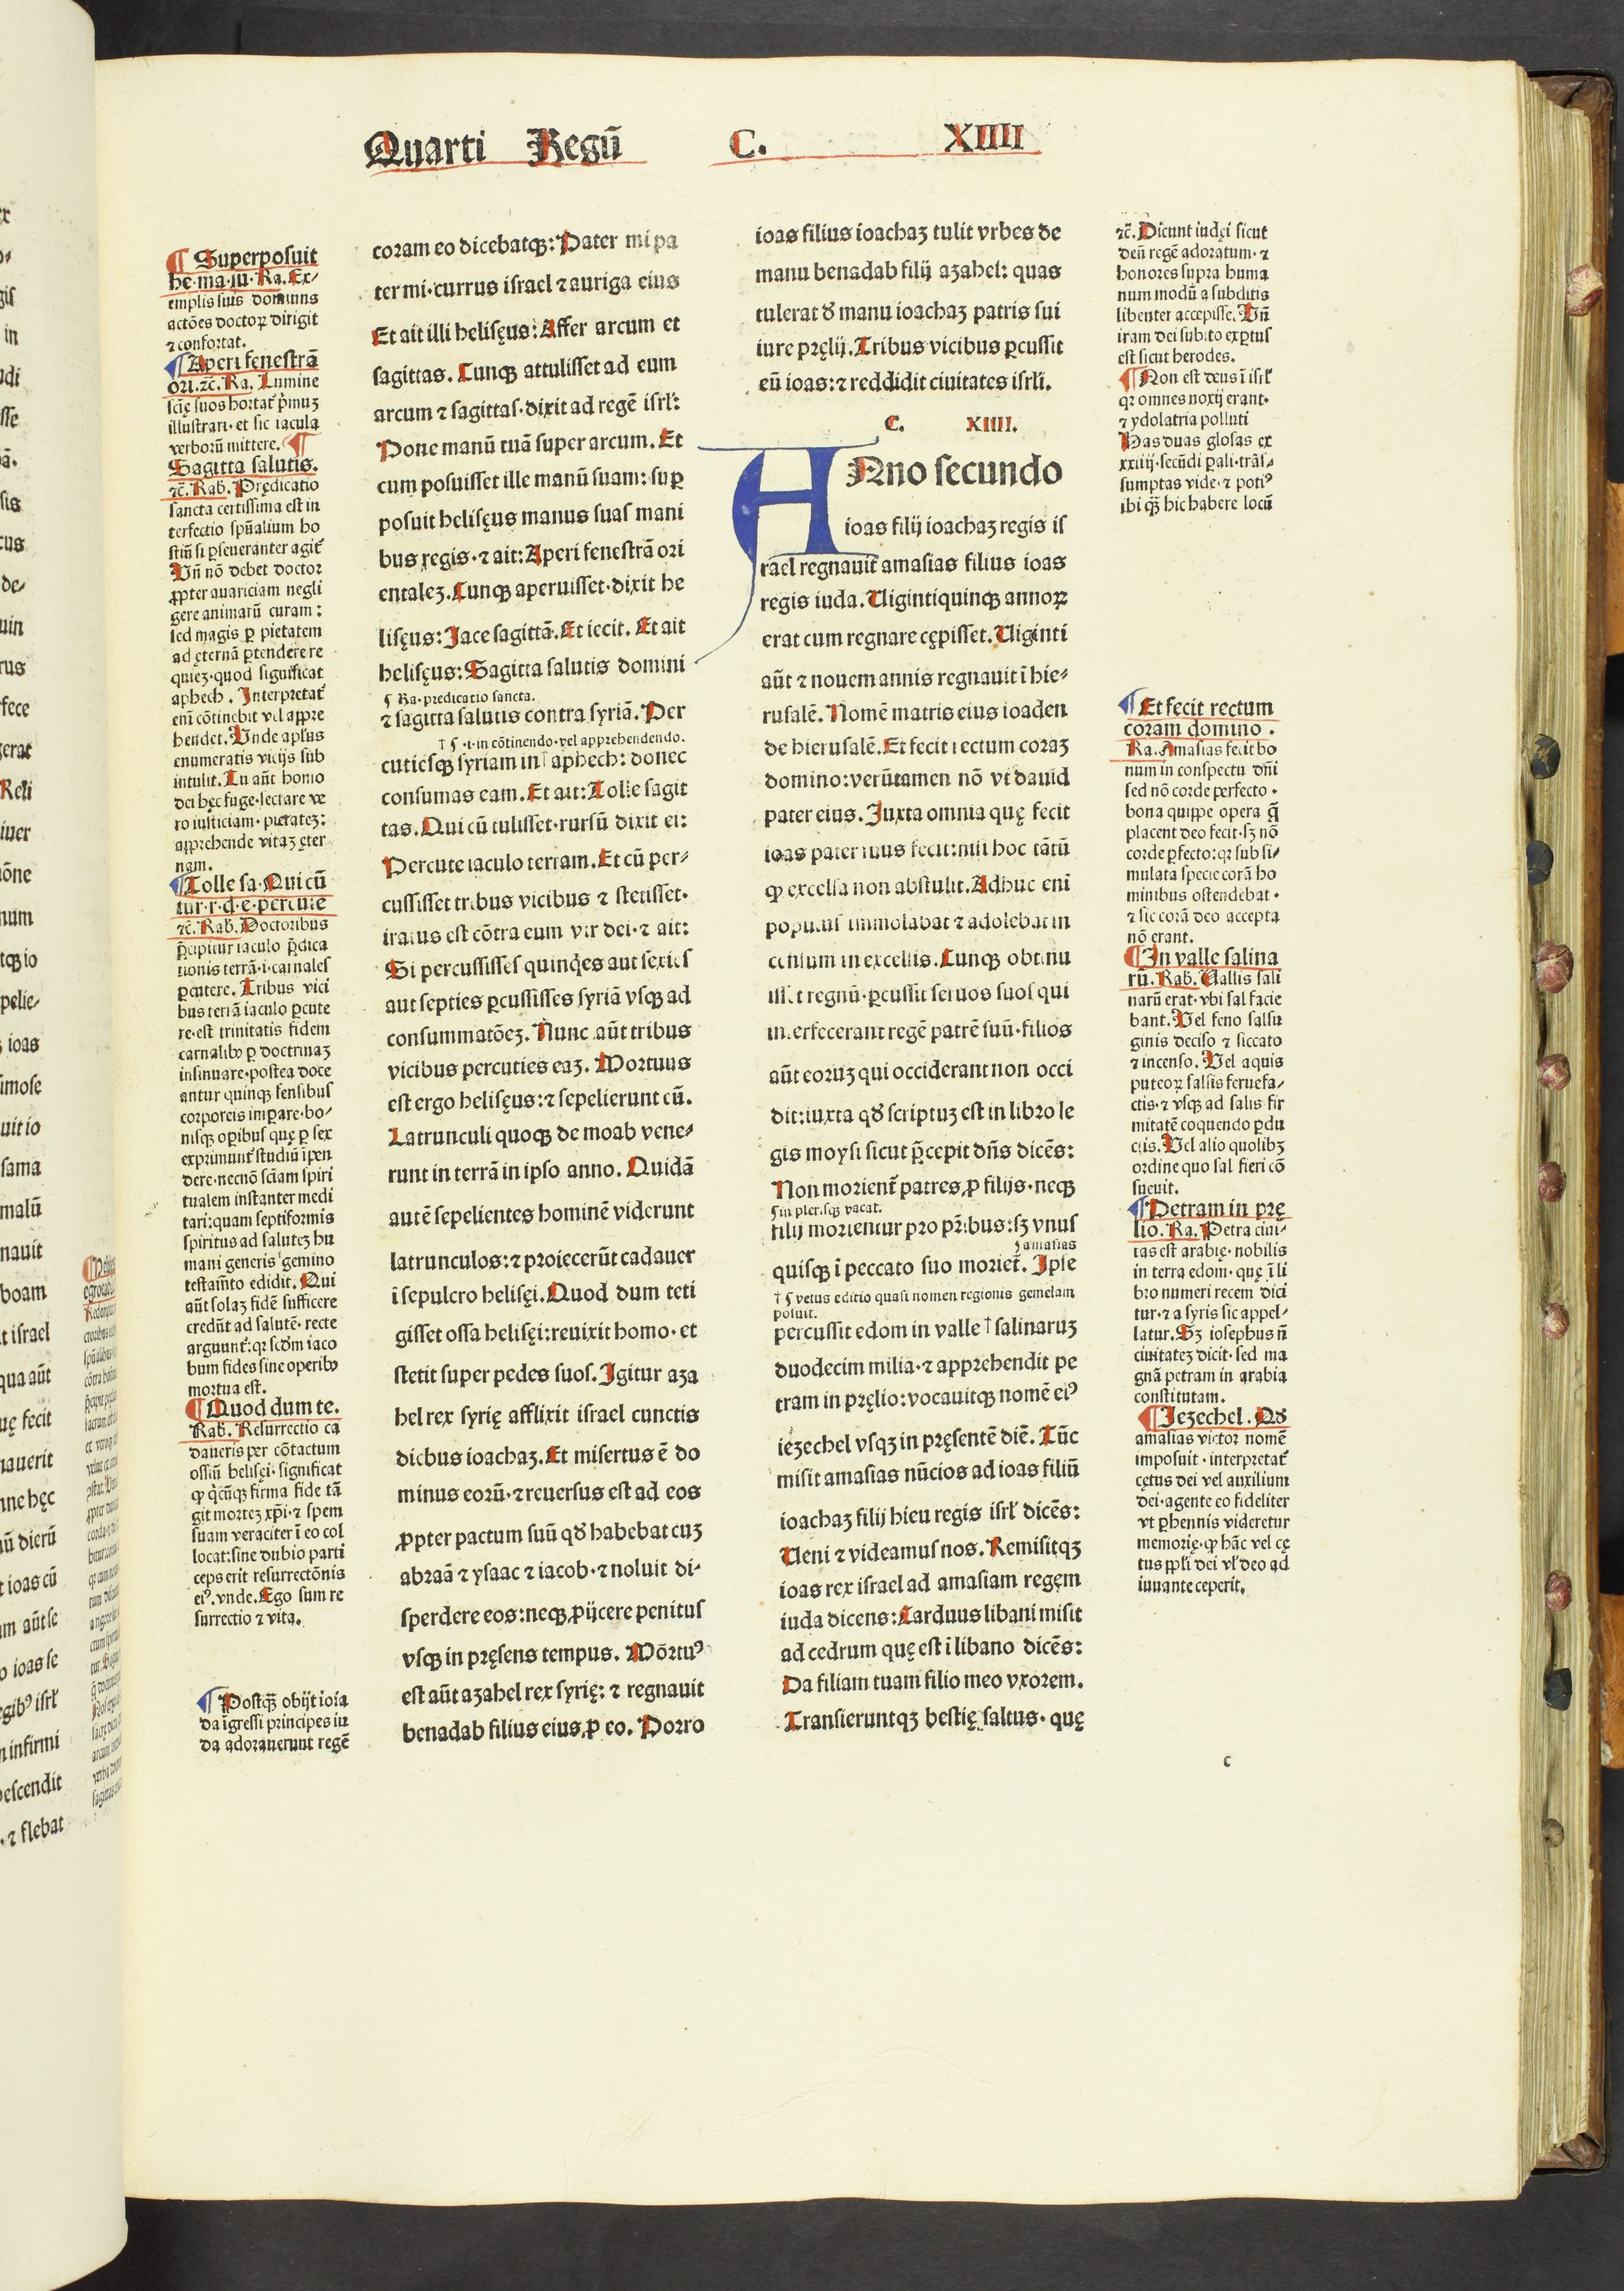 Quarti Regū C. XIIII
¶ Superposuit
he·ma·su·Ra. Ex-
emplis suis dominus
actōes doctoꝝ dirigit
⁊ confortat.
¶ Aperi fenestrā
ori.⁊c̄. Ra. Lumine
scię suos hortat᷑ p̄muꝫ
illustrari· et sic iacula
verborū mittere. ¶
Sagitta salutis.
⁊c̄. Rab. Prędicatio
sancta certissima est in
terfectio spūalium ho
stiū si ꝑseueranter agit᷑
Vn̄ nō debet doctor
ꝓpter auariciam negli
gere animarū curam:
sed magis ꝑ pietatem
ad ęternā ꝑtendere re
quieꝫ·quod significat
aphech. Interpretat᷑
eni cōtinebit vel appre
hendet. Vnde apl'us
enumeratis vicijs sub
intulit. Tu aūt homo
dei hęc fuge·sectare ve
ro iusticiam· pietateꝫ:
apprehende vitaꝫ ęter
nam.
¶ Tolle sa·Qui cū
tur·r·d·e·percute
⁊c̄. Rab. Doctoribus
p̄cipitur iaculo p̄dica
tionis terrā·i·carnales
ꝑcutere. Tribus vici
bus terrā iaculo ꝑcute
re·est trinitatis fidem
carnalibꝰ ꝑ doctrinaꝫ
insinuare·postea doce
antur quinqꝫ sensibus
corporeis imꝑare·ho-
nisqꝫ oꝑibus quę ꝑ sex
exprimunt᷑ studiū īpen
dere·necnō sc̄iam spiri
tualem instanter medi
tari:quam septiformis
spiritus ad saluteꝫ hu
mani generis gemino
testam̄to edidit. Qui
aūt solaꝫ fidē sufficere
credūt ad salutē· recte
arguunt᷑:qꝛ scd̄m iaco
bum fides sine operibꝰ
mortua est.
¶ Quod dum te.
Rab. Resurrectio ca
daueris per cōtactum
ossiū helisęi· significat
ꝙ q̇cūqꝫ firma fide tā
git morteꝫ xp̄i·⁊ spem
suam veraciter ī eo col
locat:sine dubio parti
ceps erit resurrectōnis
eiꝰ. vnde. Ego sum re
surrectio ⁊ vita.
¶ Postqꝫ obijt ioia
da īgressi principes iu
da adorauerunt regē
coram eo dicebatqꝫ: Pater mi pa
ter mi·currus israel ⁊ auriga eius
Et ait illi helisęus: Affer arcum et
sagittas. Cunqꝫ attulisset ad eum
arcum ⁊ sagittas·dixit ad regē isrl':
Pone manū tuā super arcum. Et
cum posuisset ille manū suam: suꝑ
posuit helisęus manus suas mani
bus regis·⁊ ait: Aperi fenestrā ori
entaleꝫ. Cunqꝫ aperuisset·dixit he
lisęus: Jace sagittā. Et iecit. Et ait
helisęus: Sagitta salutis domini
¶ Ra·predicatio sancta.
⁊ sagitta salutis contra syriā. Per
† ¶ ·i·in cōtinendo·vel apprehendendo.
cuties qꝫ syriam in † aphech: donec
consumas eam. Et ait: Tolle sagit
tas. Qui cū tulisset·rursū dixit ei:
Percute iaculo terram. Et cū per-
cussisset tribus vicibus ⁊ stetisset·
iratus est cōtra eum vir dei·⁊ ait:
Si percussisses quinqes aut sexies
aut septies ꝑcussisses syriā vsqꝫ ad
consummatōeꝫ. Nunc aūt tribus
vicibus percuties eaꝫ. Mortuus
est ergo helisęus:⁊ sepelierunt eū.
Latrunculi quoqꝫ de moab vene-
runt in terrā in ipso anno. Quidā
autē sepelientes hominē viderunt
latrunculos:⁊ proiecerūt cadauer
ī sepulcro helisęi. Quod dum teti
gisset ossa helisęi:reuixit homo· et
stetit super pedes suos. Igitur aza
hel rex syrię afflixit israel cunctis
diebus ioachaꝫ. Et misertus ē do
minus eorū·⁊ reuersus est ad eos
ꝓpter pactum suū qď habebat cuꝫ
abraā ⁊ ysaac ⁊ iacob·⁊ noluit di-
sperdere eos:neqꝫ ꝓijcere penitus
vsqꝫ in pręsens tempus. Mōrtuꝰ
est aūt azahel rex syrię: ⁊ regnauit
benadab filius eius ꝓ eo. Porro
ioas filius ioachaꝫ tulit vrbes de
manu benadab filij azahel: quas
tulerat ď manu ioachaꝫ patris sui
iure pręlij. Tribus vicibus ꝑcussit
eū ioas:⁊ reddidit ciuitates isrl'i.
C. XIIII.
ANno secundo
ioas filij ioachaꝫ regis is
rael regnauit amasias filius ioas
regis iuda. Uigintiquinqꝫ annoꝝ
erat cum regnare cępisset. Uiginti
aūt ⁊ nouem annis regnauit ī hie-
rusalē. Nomē matris eius ioaden
de hierusalē. Et fecit rectum coraꝫ
domino:verūtamen nō vt dauid
pater eius. Juxta omnia quę fecit
ioas pater suus fecit:nisi hoc tātū
ꝙ excelsa non abstulit. Adhuc enī
populus immolabat ⁊ adolebat in
censum in excelsis. Cunqꝫ obtinu
isset regnū·ꝑcussit seruos suos qui
interfecerant regē patrē suū·filios
aūt eoruꝫ qui occiderant non occi
dit:iuxta qď scriptuꝫ est in libro le
gis moysi sicut p̄cepit dn̄s dicēs:
Non morient᷑ patres ꝓ filijs·neqꝫ
¶ in pler.sqꝫ vacat.
filij morientur pro pr̄ibus:sꝫ vnus
¶ amasias
quisqꝫ ī peccato suo moriet᷑. Ipse
† ¶ vetus editio quasi nomen regionis gemelam
posuit.
percussit edom in valle † salinaruꝫ
duodecim milia·⁊ apprehendit pe
tram in pręlio:vocauitqꝫ nomē eiꝰ
iezechel vsqꝫ in pręsentē diē. Tūc
misit amasias nūcios ad ioas filiū
ioachaꝫ filij hieu regis isrl' dicēs:
Ueni ⁊ videamus nos. Remisitqꝫ
ioas rex israel ad amasiam regem
iuda dicens: Carduus libani misit
ad cedrum quę est ī libano dicēs:
Da filiam tuam filio meo vxorem.
Transieruntqꝫ bestię saltus· quę
⁊c̄. Dicunt iudęi sicut
deū regē adoratum· ⁊
honores supra huma
num modū a subditis
libenter accepisse. Vn̄
iram dei subito exꝑtus
est sicut herodes.
¶ Non est deus ī isrl'
qꝛ omnes noxij erant·
⁊ ydolatria polluti
Has duas glosas ex
xxiiij·secūdi ꝑali·trās-
sumptas vide·⁊ potiꝰ
ibi qꝫ hic habere locū
¶ Et fecit rectum
coram domino.
Ra. Amasias fecit bo
num in conspectu dn̄i
sed nō corde perfecto·
bona quippe opera q̄
placent deo fecit·sꝫ nō
corde ꝑfecto:qꝛ sub si-
mulata specie corā ho
minibus ostendebat·
⁊ sic corā deo accepta
nō erant.
¶ In valle salina
rū. Rab. Uallis sali
narū erat·vbi sal facie
bant. Vel feno salsu
ginis deciso ⁊ siccato
⁊ incenso. Vel aquis
puteoꝝ salsis feruefa-
ctis·⁊ vsqꝫ ad salis fir
mitatē coquendo ꝑdu
ctis. Vel alio quolibꝫ
ordine quo sal fieri cō
sueuit.
¶ Petram in prę
lio. Ra. Petra ciui-
tas est arabię·nobilis
in terra edom·quę ī li
bro numeri recem dici
tur·⁊ a syris sic appel-
latur. Sꝫ iosephus n̄
ciuitateꝫ dicit·sed ma
gnā petram in arabia
constitutam.
¶ Iezechel. Qď
amasias victor nomē
imposuit·interpretat᷑
cętus dei vel auxilium
dei·agente eo fideliter
vt ꝑhennis videretur
memorię·ꝙ hāc vel cę
tus ppl'i dei vl' deo ad
iuuante ceperit.
c